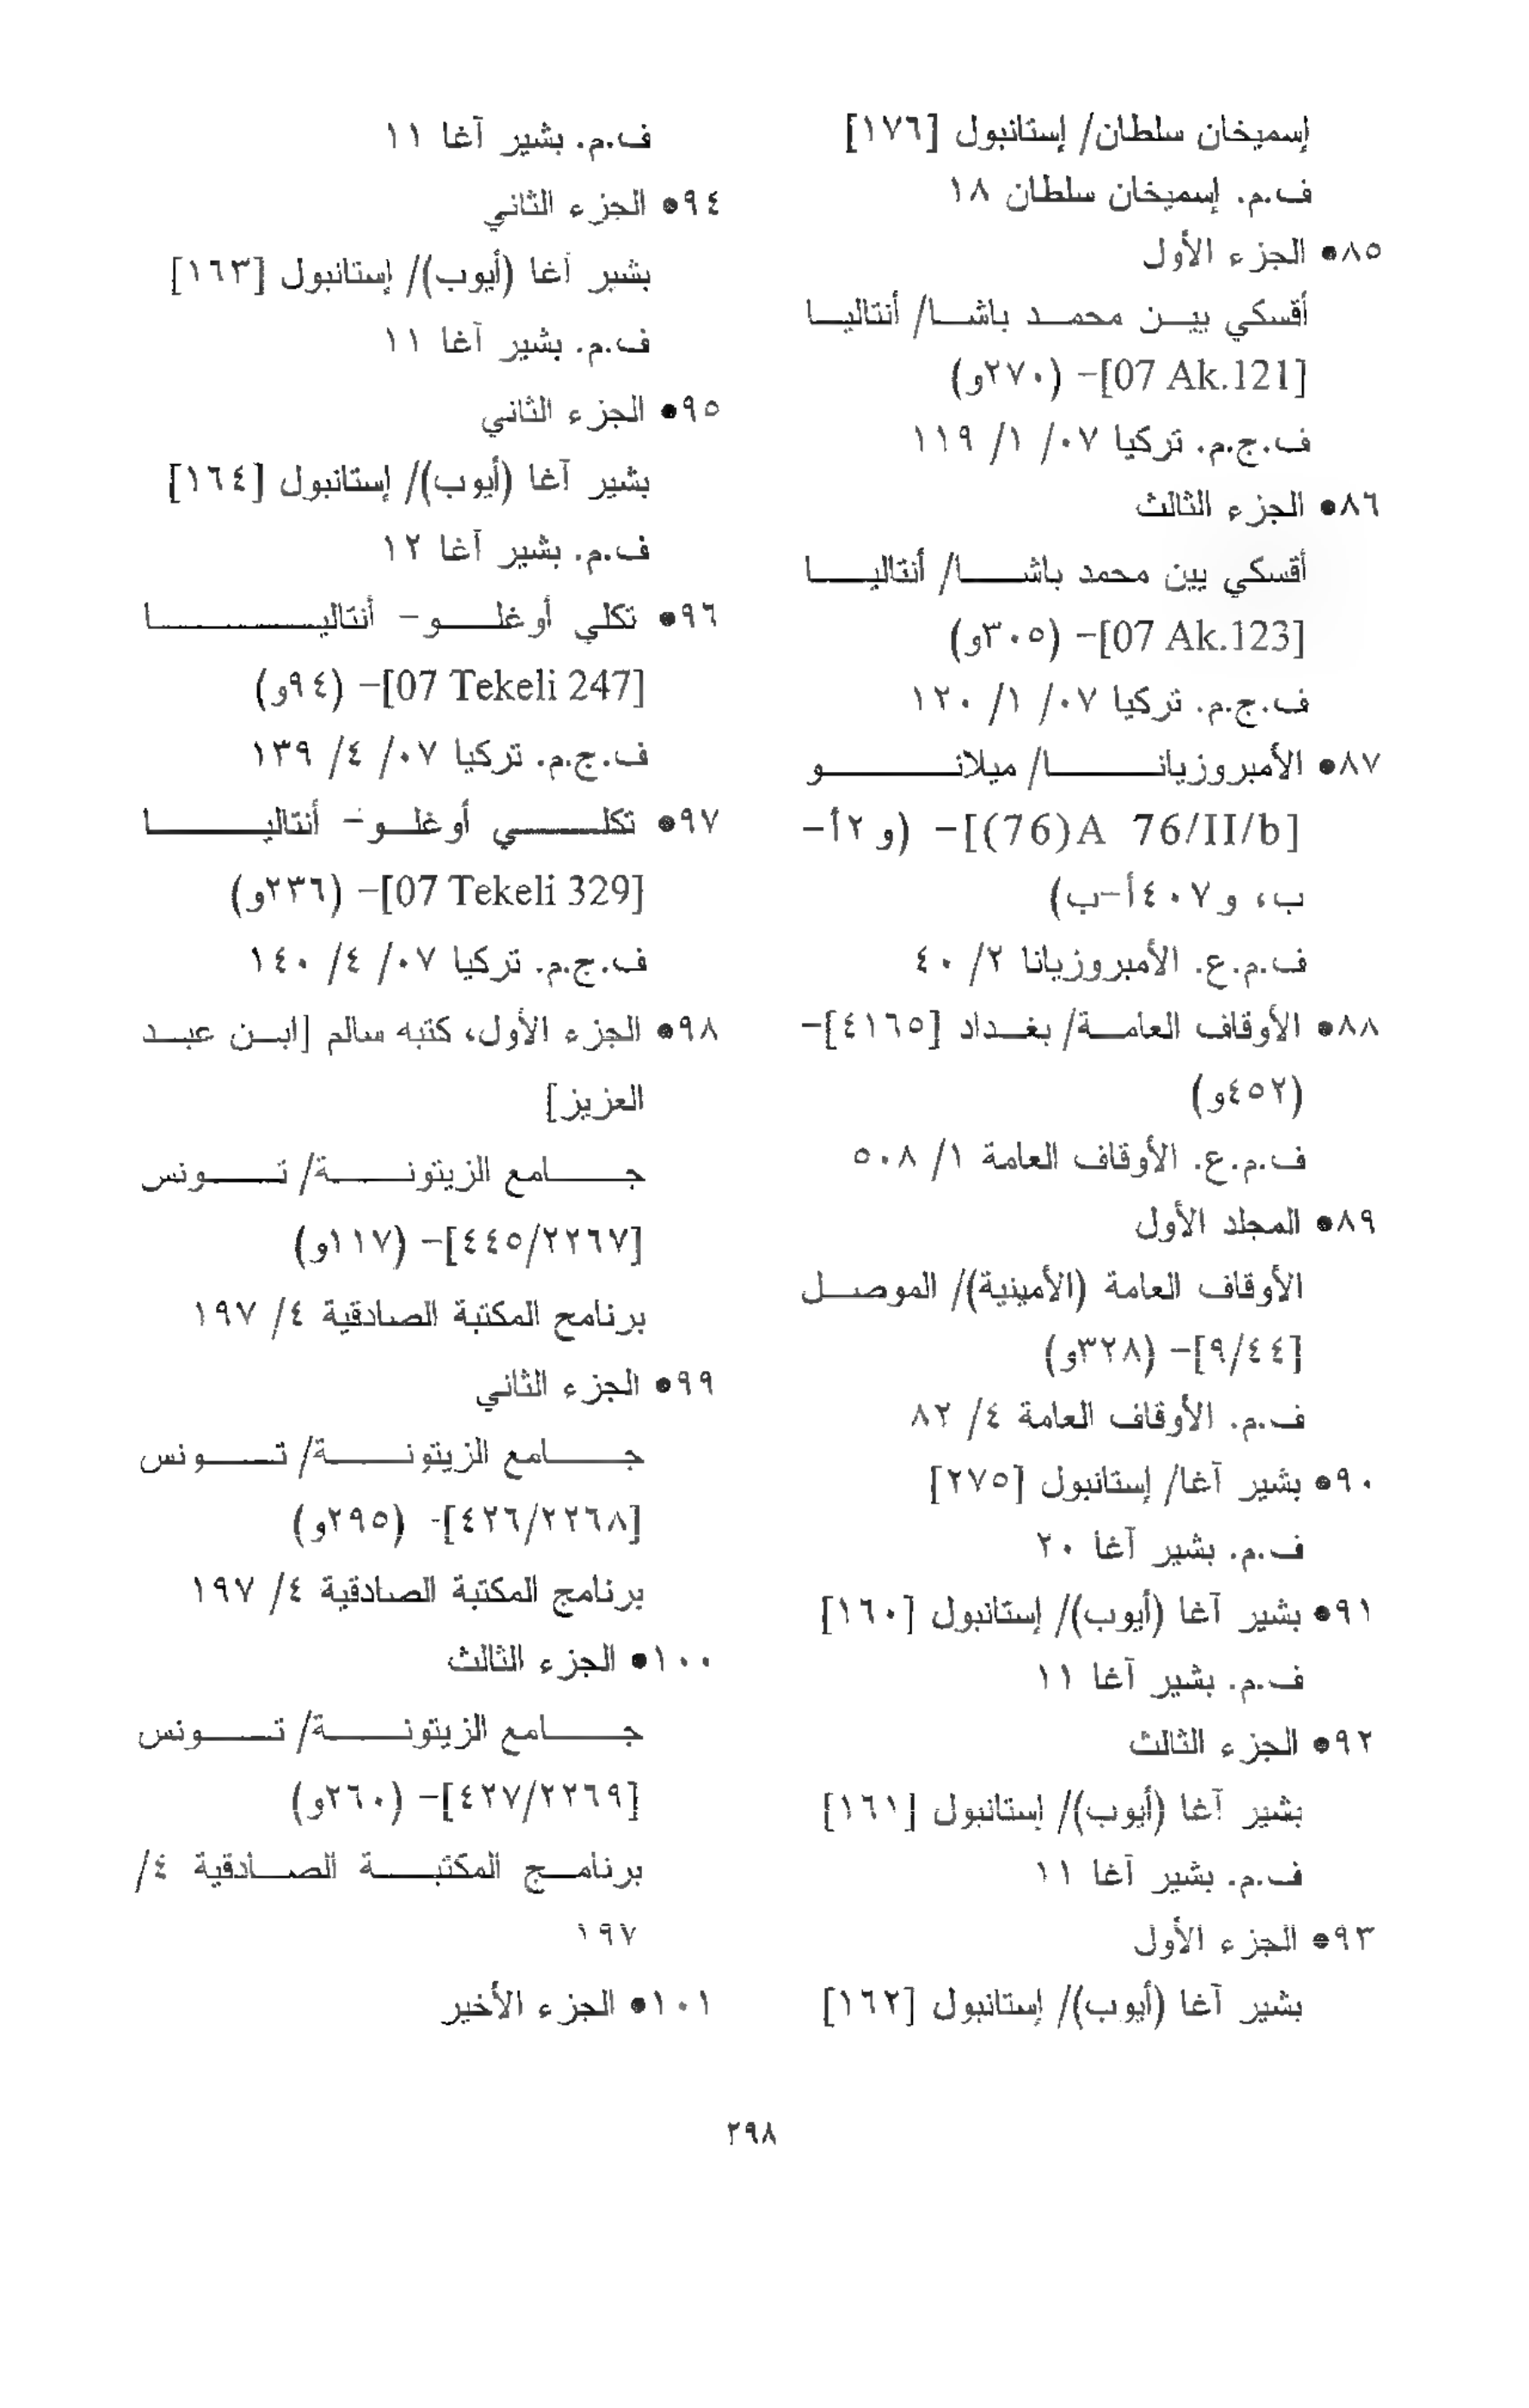 إسميخان سلطان/ إستانبول [١٧٦]
ف.م. إسميخان سلطان ١٨
٨٥• الجزء الأول
أقسكي يين محمد باشا/ أنتاليا
[07 Ak.121]– (٢٧٠و)
ف.ج.م. تركيا ٠٧/ ١/ ١١٩
٨٦• الجزء الثالث
أقسكي يين محمد باشا/ أنتاليا
[07 Ak.123]– (٣٠٥و)
ف.ج.م. تركيا ٠٧/ ١/ ١٢٠
٨٧• الأمبروزيانا/ ميلانو
[(76)A 76/II/b]– (و ٢أ–
ب، و ٤٠٧أ–ب)
ف.م.ع. الأمبروزيانا ٢/ ٤٠
٨٨• الأوقاف العامة/ بغداد [٤١٦٥]–
(٤٥٢و)
ف.م.ع. الأوقاف العامة ١/ ٥٠٨
٨٩• المجلد الأول
الأوقاف العامة (الأمينية)/ الموصل
[٩/٤٤]– (٣٢٨و)
ف.م. الأوقاف العامة ٤/ ٨٢
٩٠• بشير آغا/ إستانبول [٢٧٥]
ف.م. بشير آغا ٢٠
٩١• بشير آغا (أيوب)/ إستانبول [١٦٠]
ف.م. بشير آغا ١١
٩٢• الجزء الثالث
بشير آغا (أيوب)/ إستانبول [١٦١]
ف.م. بشير آغا ١١
٩٣• الجزء الأول
بشير آغا (أيوب)/ إستانبول [١٦٢]
ف.م. بشير آغا ١١
٩٤• الجزء الثاني
بشير آغا (أيوب)/ إستانبول [١٦٣]
ف.م. بشير آغا ١١
٩٥• الجزء الثاني
بشير آغا (أيوب)/ إستانبول [١٦٤]
ف.م. بشير آغا ١٢
٩٦• تكلي أوغلو– أنتاليا
[07 Tekeli 247]– (٩٤و)
ف.ج.م. تركيا ٠٧/ ٤/ ١٣٩
٩٧• تكلي أوغلو– أنتاليا
[07 Tekeli 329]– (٢٣٦و)
ف.ج.م. تركيا ٠٧/ ٤/ ١٤٠
٩٨• الجزء الأول، كتبه سالم [ابن عبد
العزيز]
جامع الزيتونة/ تونس
[٤٤٥/٢٢٦٧]– (١١٧و)
برنامج المكتبة الصادقية ٤/ ١٩٧
٩٩• الجزء الثاني
جامع الزيتونة/ تونس
[٤٢٦/٢٢٦٨]- (٢٩٥و)
برنامج المكتبة الصادقية ٤/ ١٩٧
١٠٠• الجزء الثالث
جامع الزيتونة/ تونس
[٤٢٧/٢٢٦٩]– (٢٦٠و)
برنامج المكتبة الصادقية ٤/
١٩٧
١٠١• الجزء الأخير
٢٩٨